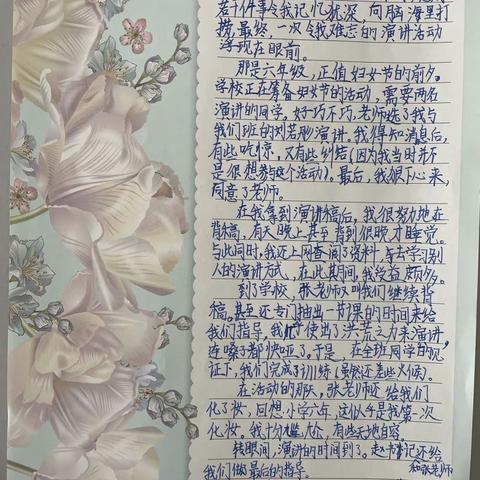 若干件事令我记忆犹深，向脑海里打
捞，最终，一次令我难忘的演讲活动
浮现在眼前。
那是六年级，正值妇女节的前夕。
学校正在筹备妇女节的活动，需要两名
演讲的同学，好巧不巧，老师选了我与
我们班的刘若彤演讲，我得知消息后，
有些吃惊，又有些纠结（因为我当时并不
是很想参与这个活动）。最后，我狠下心来，
同意了老师。
在我拿到演讲稿后，我很努力地在
背稿，有天晚上甚至背到很晚才睡觉。
与此同时，我还上网查阅了资料，去学习别
人的演讲方式，在此期间，我受益颇多。
到了学校，张老师又叫我们继续背
稿。甚至还专门抽出一节课的时间来给
我们指导，我几乎使出了洪荒之力来演讲，
连嗓子都快哑了。于是，在全班同学的见
证下，我们完成了训练（虽然还差些火候）。
在活动的那天，张老师还给我们
化了妆，回想小学六年，这似乎是我第一次
化妆。我十分尴尬，有些无地自容。
转眼间，演讲的时间到了。赵书记还给
和张老师
我们做最后的指导。